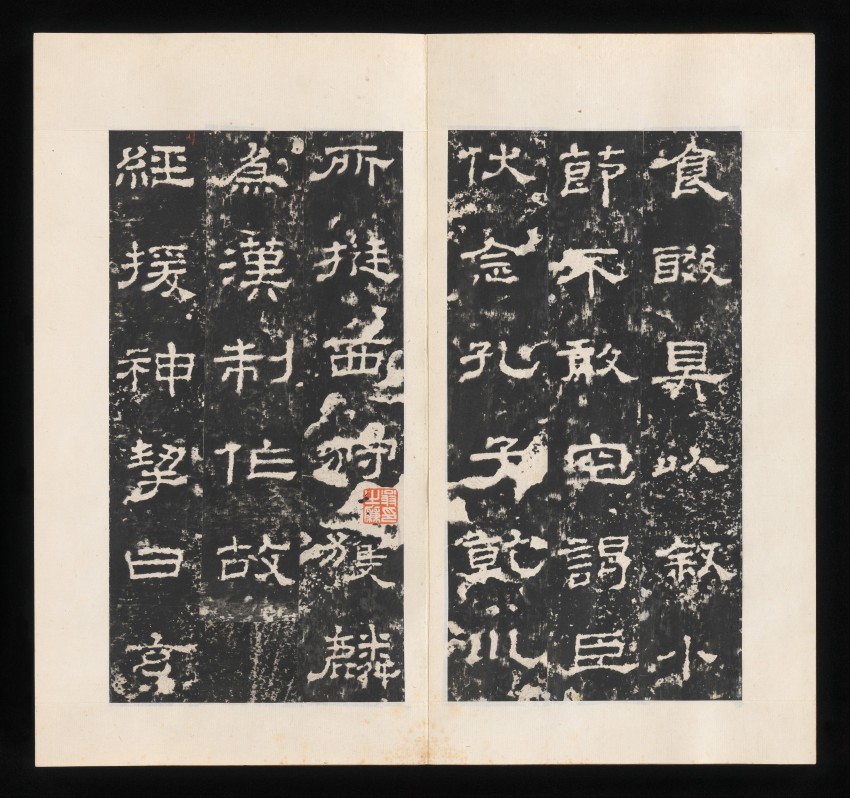 食醊具以叙小
節不敢空謁臣
伏念孔子乾巛
所挺西狩獲麟
為漢制作故
經援神挈曰玄